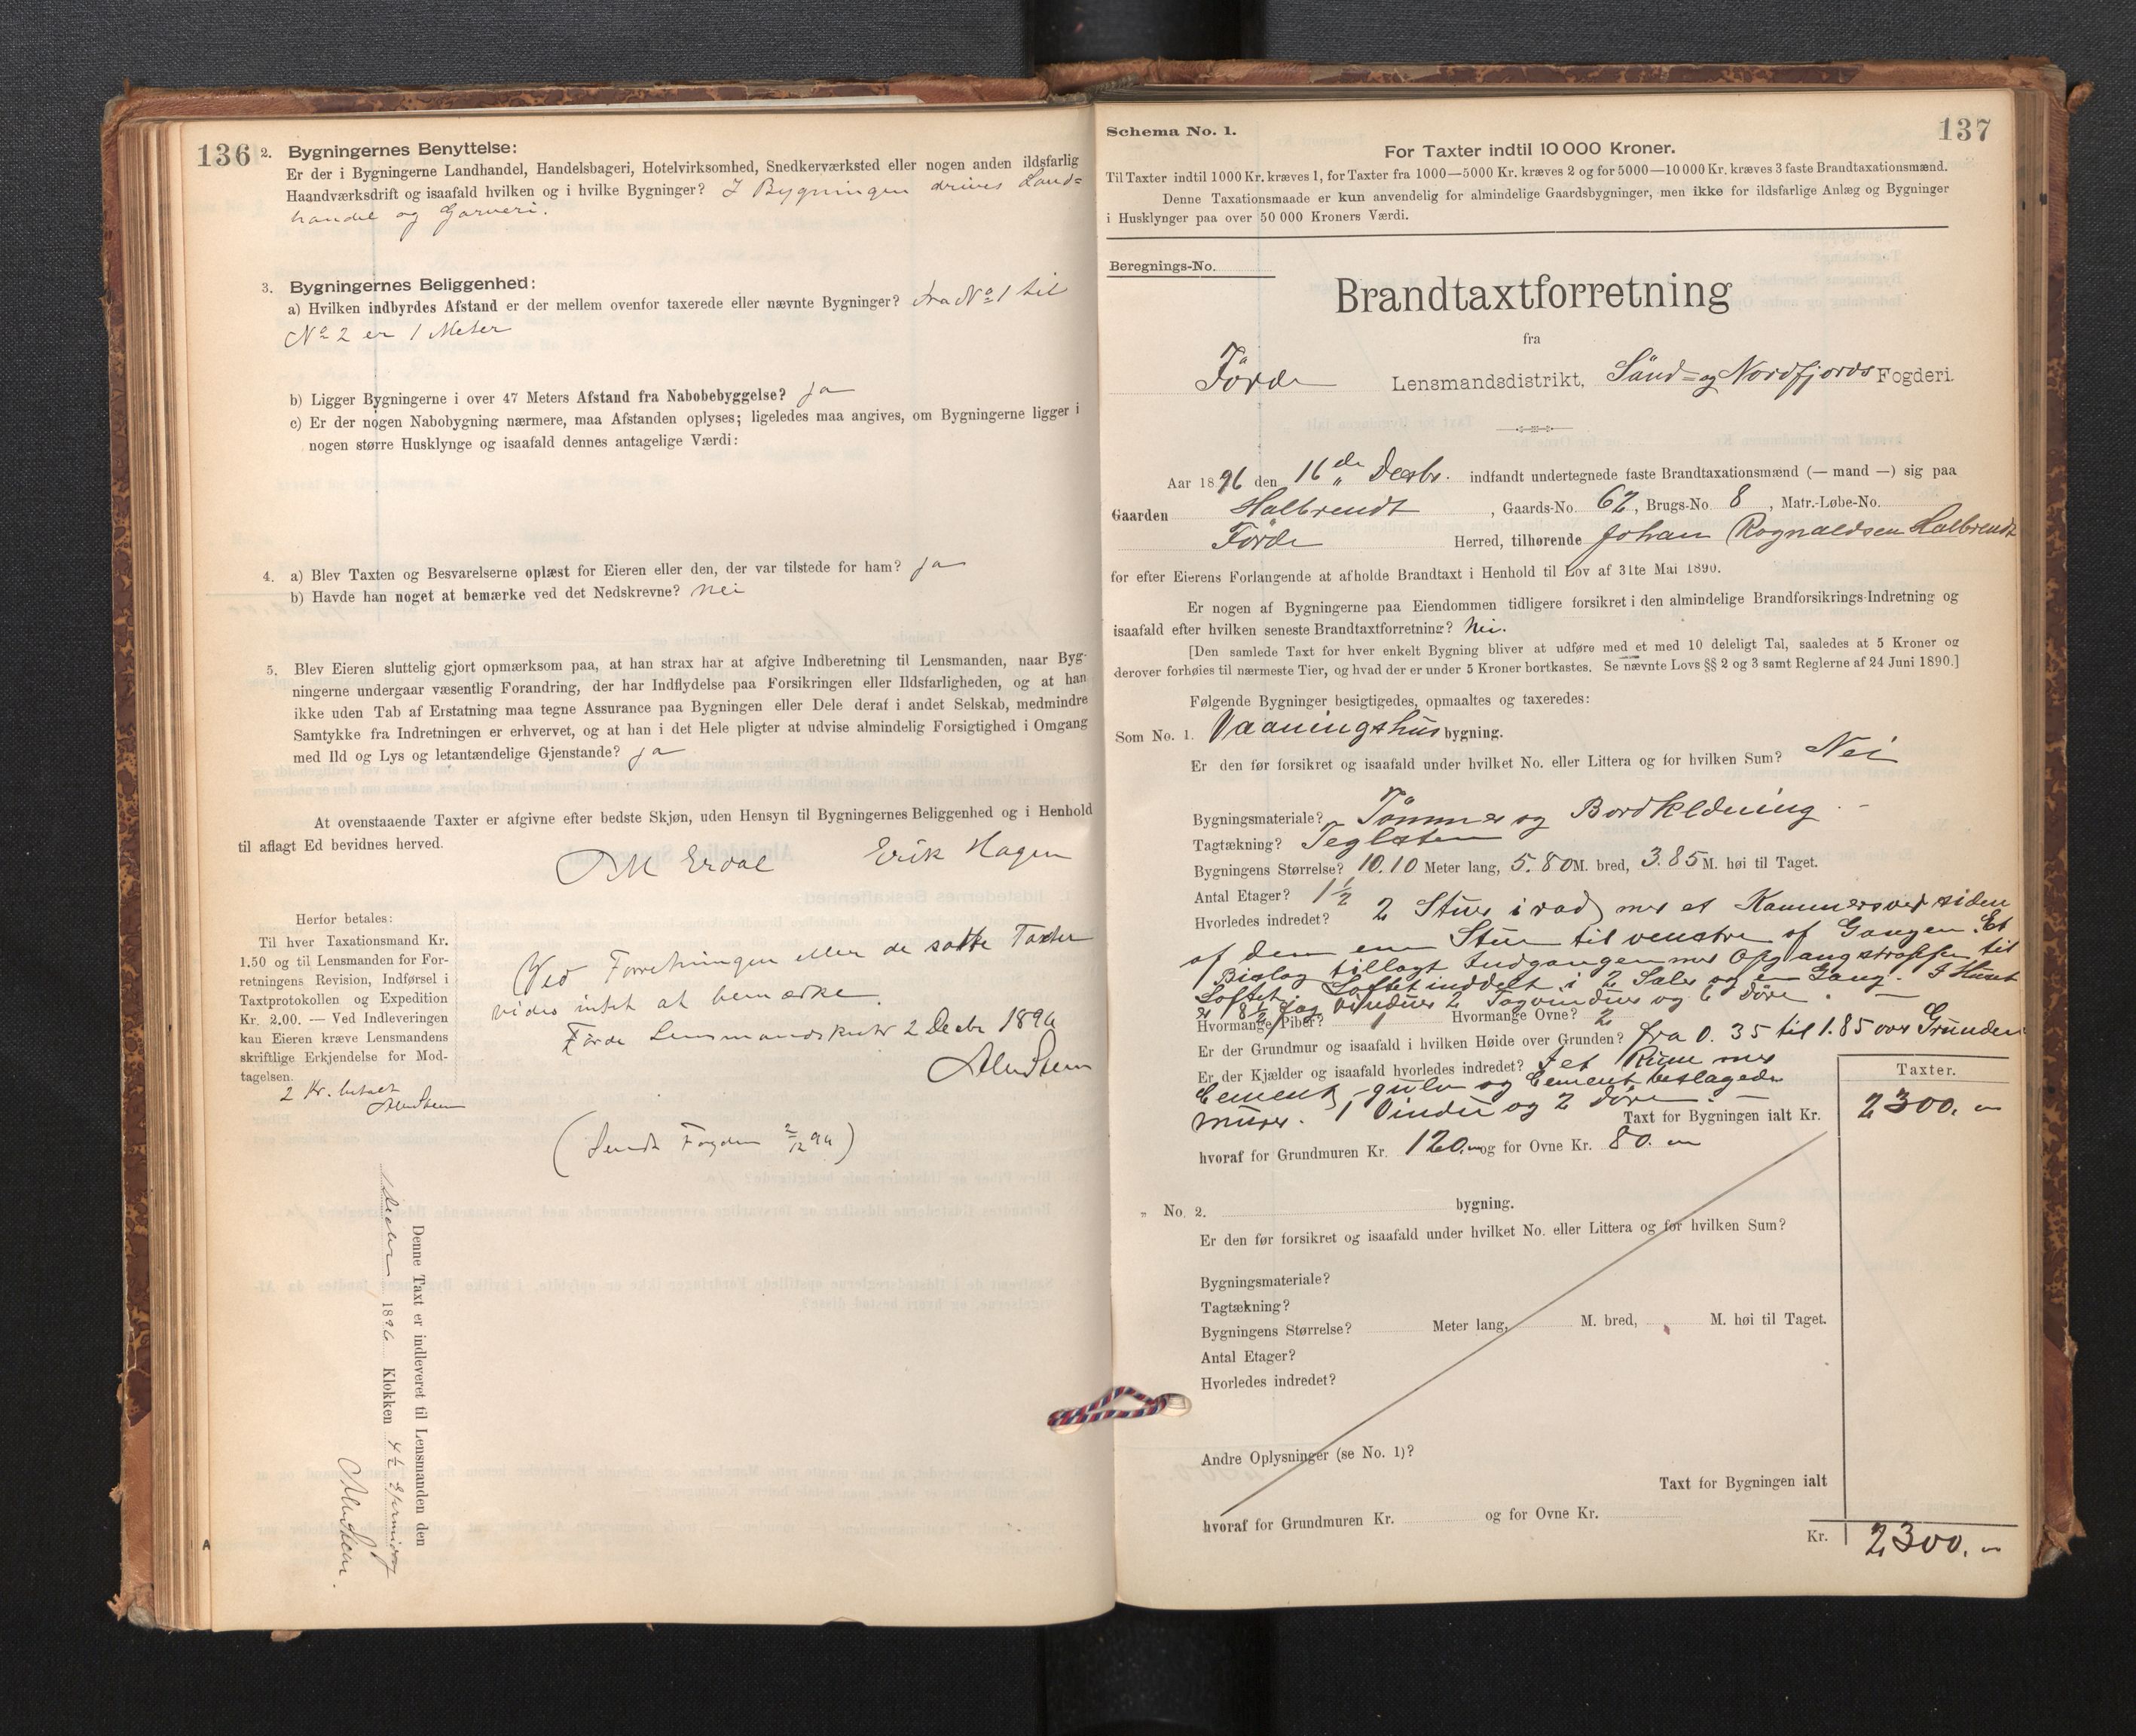 136
2. Bygningernes Benyttelse:
Er der i Bygningerne Landhandel, Handelsbageri, Hotelvirksomhed, Snedkerværksted eller nogen anden ildsfarlig
Haandværksdrift og isaafald hvilken og i hvilke Bygninger? I Bygningen drives Land=
handel og Garveri.
3. Bygningernes Beliggenhed:
a) Hvilken indbyrdes Afstand er der mellem ovenfor taxerede eller nævnte Bygninger? fra No 1 til
No 2 er 1 Meter
b) Ligger Bygningerne i over 47 Meters Afstand fra Nabobebyggelse? ja
c) Er der nogen Nabobygning nærmere, maa Afstanden oplyses; ligeledes maa angives, om Bygningerne ligger i
nogen større Husklynge og isaafald dennes antagelige Værdi:
4. a) Blev Taxten og Besvarelserne oplæst for Eieren eller den, der var tilstede for ham? ja
b) Havde han noget at bemærke ved det Nedskrevne? Nei
5. Blev Eieren sluttelig gjort opmærksom paa, at han strax har at afgive Indberetning til Lensmanden, naar Byg-
ningerne undergaar væsentlig Forandring, der har Indflydelse paa Forsikringen eller Ildsfarligheden, og at han
ikke uden Tab af Erstatning maa tegne Assurance paa Bygningen eller Dele deraf i andet Selskab, medmindre
Samtykke fra Indretningen er erhvervet, og at han i det Hele pligter at udvise almindelig Forsigtighed i Omgang
med Ild og Lys og letantændelige Gjenstande? ja
At ovenstaaende Taxter er afgivne efter bedste Skjøn, uden Hensyn til Bygningernes Beliggenhed og i Henhold
til aflagt Ed bevidnes herved.
Erdal Erik Hagen
Herfor betales:
Til hver Taxationsmand Kr.
1.50 og til Lensmanden for For-
retningens Revision, Indførsel i
Taxtprotokollen og Expedition
Kr. 2.00. — Ved Indleveringen
kan Eieren kræve Lensmandens
skriftlige Erkjendelse for Mod-
tagelsen.
2 Kr. betalt
Ved Forretningen eller de satte Taxter
vides intet at bemærke.
Förde Lensmandskontr 2 Decbr 1896
(Sendt Fogden 2/12 96)
Denne Taxt er indleveret til Lensmanden den
1896 Klokken 4 1/2 Eftermidag
A
137
Schema No. 1.
For Taxter indtil 10 000 Kroner.
Til Taxter indtil 1000 Kr. kræves 1, for Taxter fra 1000—5000 Kr. kræves 2 og for 5000—10 000 Kr. kræves 3 faste Brandtaxationsmænd.
Denne Taxationsmaade er kun anvendelig for almindelige Gaardsbygninger, men ikke for ildsfarlige Anlæg og Bygninger
i Husklynger paa over 50 000 Kroners Værdi.
Beregnings-No.
Brandtaxtforretning
fra
Förde Lensmandsdistrikt, Sünd= og Nordfjords Fogderi.
Aar 1896 den 16de Decbr. indfandt undertegnede faste Brandtaxationsmænd (— mand —) sig paa
Gaarden Halbrendt, Gaards-No. 62, Brugs-No. 8, Matr.-Løbe-No.
Förde Herred, tilhørende Johan Rognaldsen Halbrendt
for efter Eierens Forlangende at afholde Brandtaxt i Henhold til Lov af 31te Mai 1890.
Er nogen af Bygningerne paa Eiendommen tidligere forsikret i den almindelige Brandforsikrings-Indretning og
isaafald efter hvilken seneste Brandtaxtforretning? Nei.
[Den samlede Taxt for hver enkelt Bygning bliver at udføre med et med 10 deleligt Tal, saaledes at 5 Kroner og
derover forhøies til nærmeste Tier, og hvad der er under 5 Kroner bortkastes. Se nævnte Lovs §§ 2 og 3 samt Reglerne af 24 Juni 1890.]
Følgende Bygninger besigtigedes, opmaaltes og taxeredes:
Som No. 1. Vaaningshus bygning.
Er den før forsikret og isaafald under hvilket No. eller Littera og for hvilken Sum? Nei
Bygningsmateriale? Tömmer og Bordklædning
Tagtækning? Teglsten
Bygningens Størrelse? 10.10 Meter lang, 5.80 M. bred, 3.85 M. høi til Taget.
Antal Etager? 1 1/2
Hvorledes indredet? 2 Stuer i rad med et Kammers ved siden
af den ene Stue til venstre af Gangen. Et
Bislag tillagt Indgangen med Opgangstrappen til
Loftet. Loftet inddelt i 2 Sale og en Gang. I Huset
er 8 1/2 fag Vinduer 2 Tagvinduer og 6 Döre.
Hvormange Piber? 1 Hvormange Ovne? 2
Er der Grundmur og isaafald i hvilken Høide over Grunden? fra 0.35 til 1.85 over Grunden
Er der Kjælder og isaafald hvorledes indredet? I et Rum med
Cement gulv og Cement beslagede
Murer. 1 Vindu og 2 döre
Taxter.
Taxt for Bygningen ialt Kr. 2300.
hvoraf for Grundmuren Kr. 120. og for Ovne Kr. 80.
„ No. 2. bygning.
Er den før forsikret og isaafald under hvilket No. eller Littera og for hvilken Sum?
Bygningsmateriale?
Tagtækning?
Bygningens Størrelse? Meter lang, M. bred, M. høi til Taget.
Antal Etager?
Hvorledes indredet?
Andre Oplysninger (se No. 1)?
Taxt for Bygningen ialt
hvoraf for Grundmuren Kr. og for Ovne Kr.
Kr. 2300.